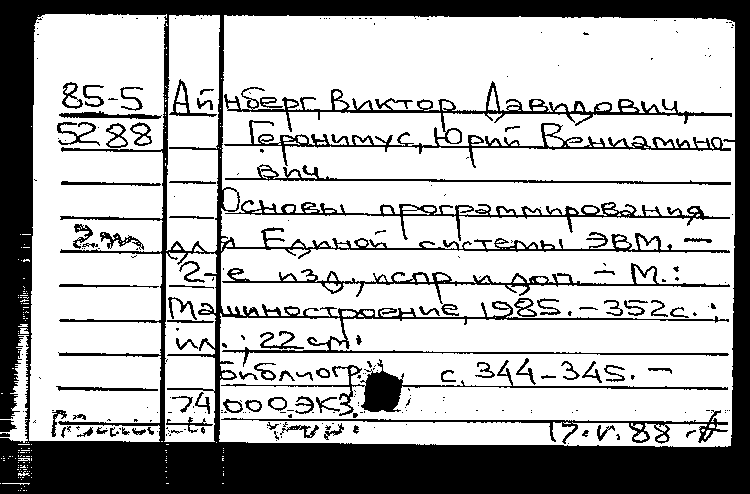 85-5 Айнберг, Виктор Давидович,
5288 Геронимус, Юрий Вениамино-
вич.
Основы программирования
для Единой системы ЭВМ. —
2-е изд., испр. и доп. — М.:
Машиностроение, 1985. — 352 с. :
ил. ; 22 cm.
Библиогр. с. 344-345. —
74 000 экз.
17.V.88